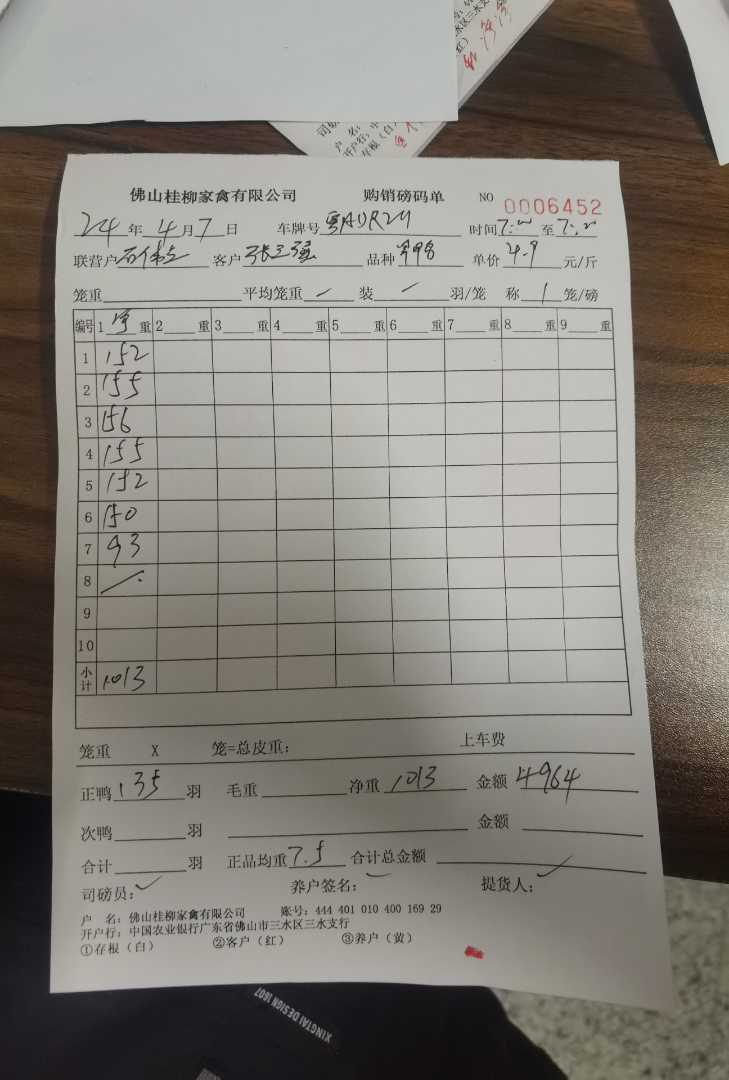 佛山桂柳家禽有限公司 购销磅码单 NO 0006452
24年4月7日 车牌号 时间7: 至7:
联营户 客户张三强 品种 单价4.9元/斤
笼重 平均笼重 / 装 / 羽/笼 称 1 笼/磅
编号 1 净 重 2 重 3 重 4 重 5 重 6 重 7 重 8 重 9 重
1 152
2 155
3 156
4 155
5 152
6 150
7 93
8
9
10
小计 1013
笼重 X 笼=总皮重: 上车费
正鸭 135 羽 毛重 净重 1013 金额 4964
次鸭 羽 金额
合计 羽 正品均重 7.5 合计总金额
司磅员: 养户签名: 提货人:
户 名: 佛山桂柳家禽有限公司 账号: 444 401 010 400 169 29
开户行: 中国农业银行广东省佛山市三水区三水支行
①存根(白) ②客户(红) ③养户(黄)
XINGTAI DESIGN 1607